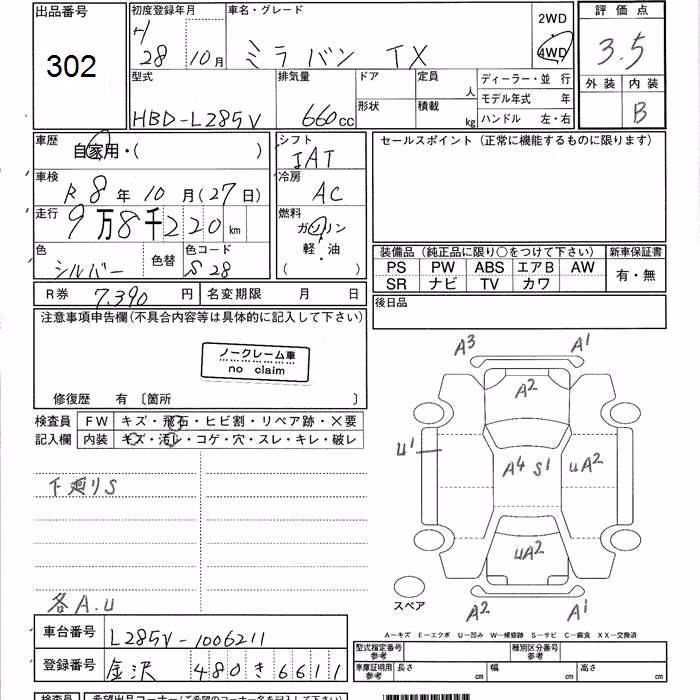 出品番号 初度登録年月 車名・グレード 2WD 評価点
302 H28 10月 ミラバン TX 4WD 3.5
型式 排気量 ドア 定員 人 ディーラー・並行 外装 内装
HBD-L285V 660cc 形状 積載 kg モデル年式 年 B
ハンドル 左・右
車歴 自家用・( ) シフト IAT セールスポイント(正常に機能するものに限ります)
車検 R 8年 10月(27日) 冷房 AC
走行 9万8千220km 燃料 ガソリン
軽・油
( )
色 シルバー 色替 色コード S28
装備品(純正品に限り○をつけて下さい) 新車保証書
PS PW ABS エアB AW 有・無
SR ナビ TV カワ
R券 7,390円 名変期限 月 日 後日品
注意事項申告欄(不具合内容等は具体的に記入して下さい)
ノークレーム車
no claim
修復歴 有〔箇所 〕
検査員 FW キズ・飛石・ヒビ割・リペア跡・×要
記入欄 内装 キズ・汚レ・コゲ・穴・スレ・キレ・破レ
下廻りS
各A.U
A3 A1
A2
U1 A4 S1 UA2
UA2
スペア A2 A1
A-キズ E-エクボ U-凹み W-補修跡 S-サビ C-腐食 XX-交換済
車台番号 L285V-1006211
登録番号 金沢 480 き 6611
型式指定番号 参考 種別区分番号 参考
車庫証明用 参考 長さ cm 幅 cm 高さ cm
検査員 希望出品コーナー